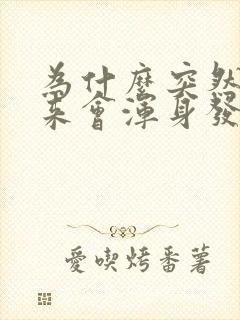 為什麼突然
來會渾身發
愛喫烤番薯